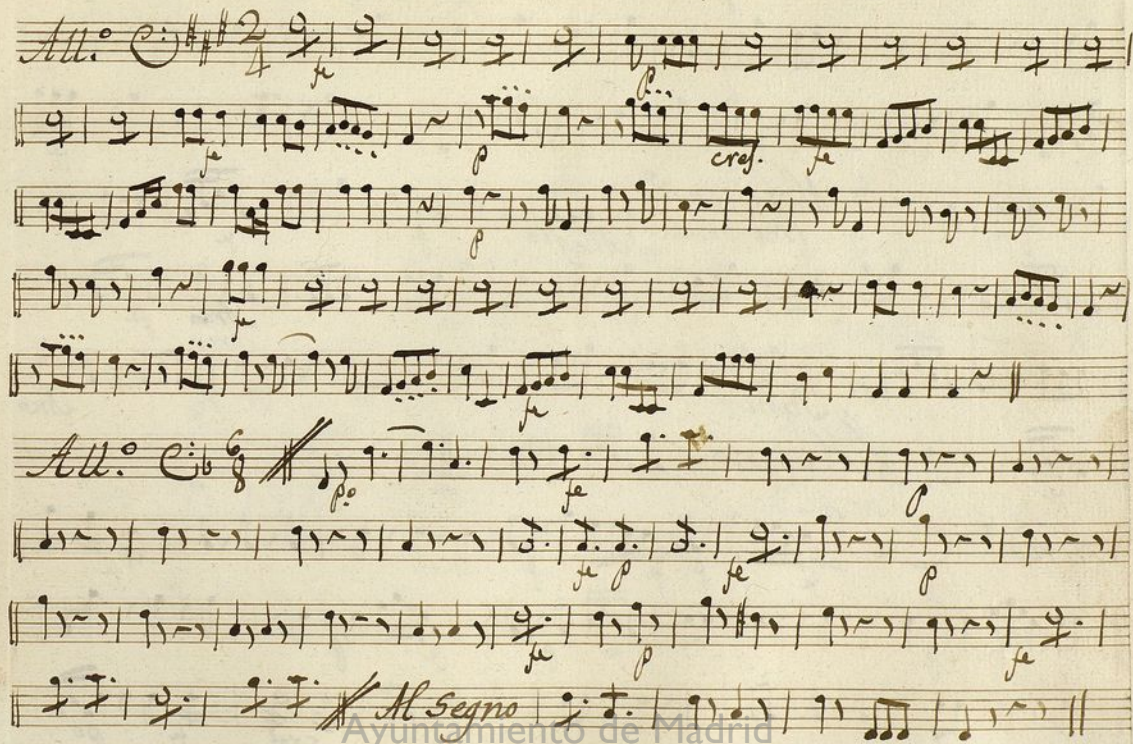 All.º 2/4
fe p
fe p cresc. fe
p
fe
fe
All.º 6/8 p.º fe p
fe p fe p
fe p fe
Al Segno
Ayuntamiento de Madrid